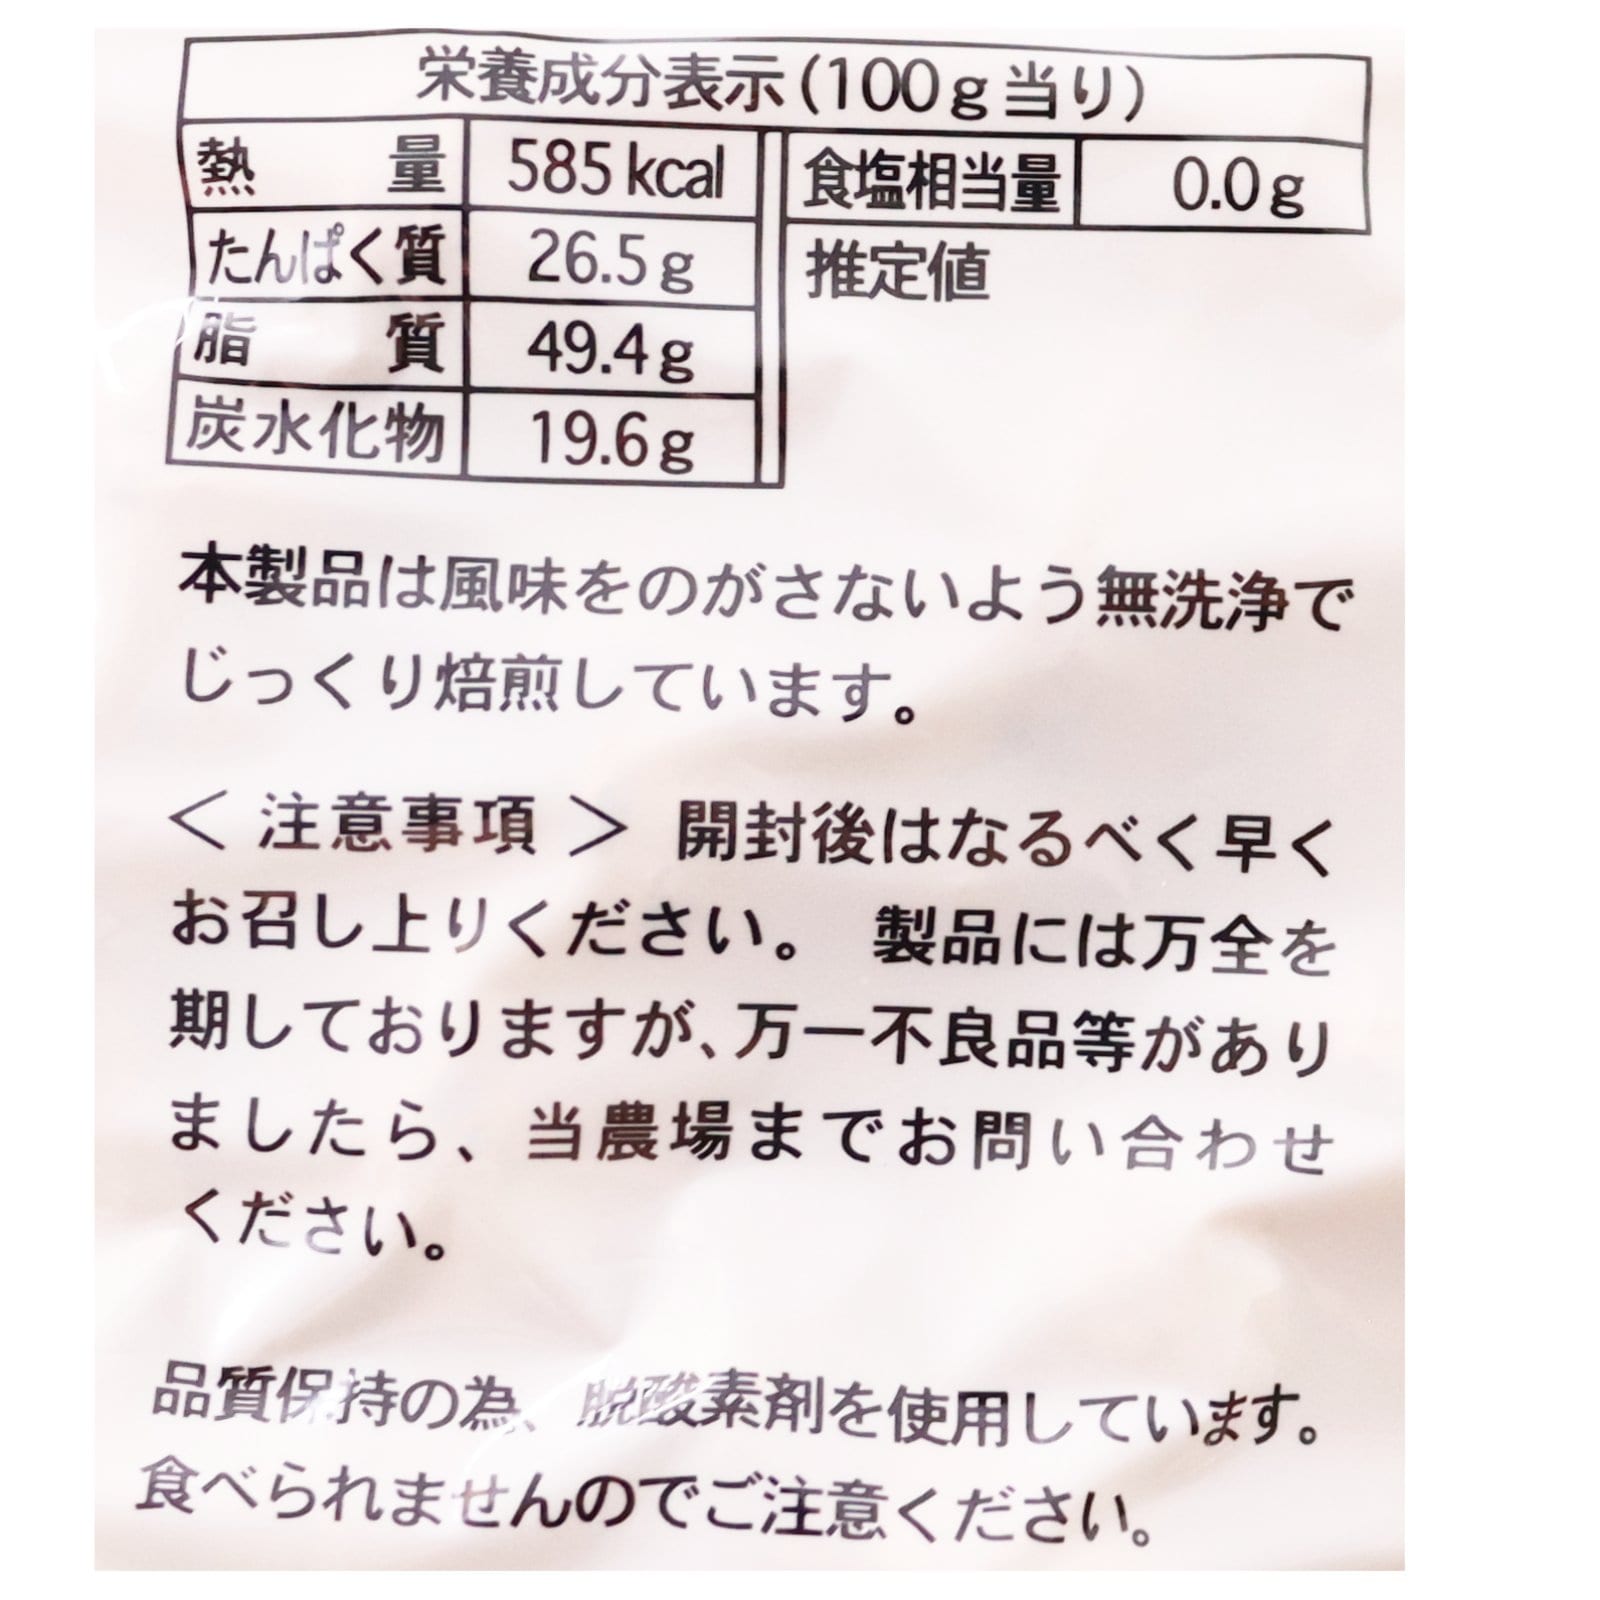 栄養成分表示(100g当り)
熱量 585kcal 食塩相当量 0.0g
たんぱく質 26.5g 推定値
脂質 49.4g
炭水化物 19.6g
本製品は風味をのがさないよう無洗浄で
じっくり焙煎しています。
＜注意事項＞ 開封後はなるべく早く
お召し上りください。 製品には万全を
期しておりますが、万一不良品等があり
ましたら、当農場までお問い合わせ
ください。
品質保持の為、脱酸素剤を使用しています。
食べられませんのでご注意ください。